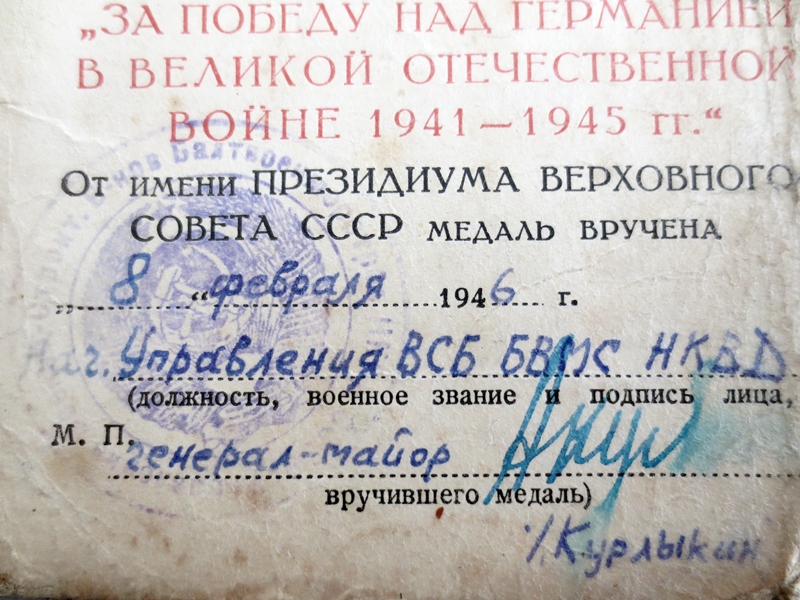 „ЗА ПОБЕДУ НАД ГЕРМАНИЕЙ
В ВЕЛИКОЙ ОТЕЧЕСТВЕННОЙ
ВОЙНЕ 1941—1945 гг.“
От имени ПРЕЗИДИУМА ВЕРХОВНОГО
СОВЕТА СССР МЕДАЛЬ ВРУЧЕНА
„8“ февраля 1946 г.
Нач. Управления ВСБ БВМС НКВД
(должность, военное звание и подпись лица,
М. П. генерал-майор
вручившего медаль)
/Курлыкин